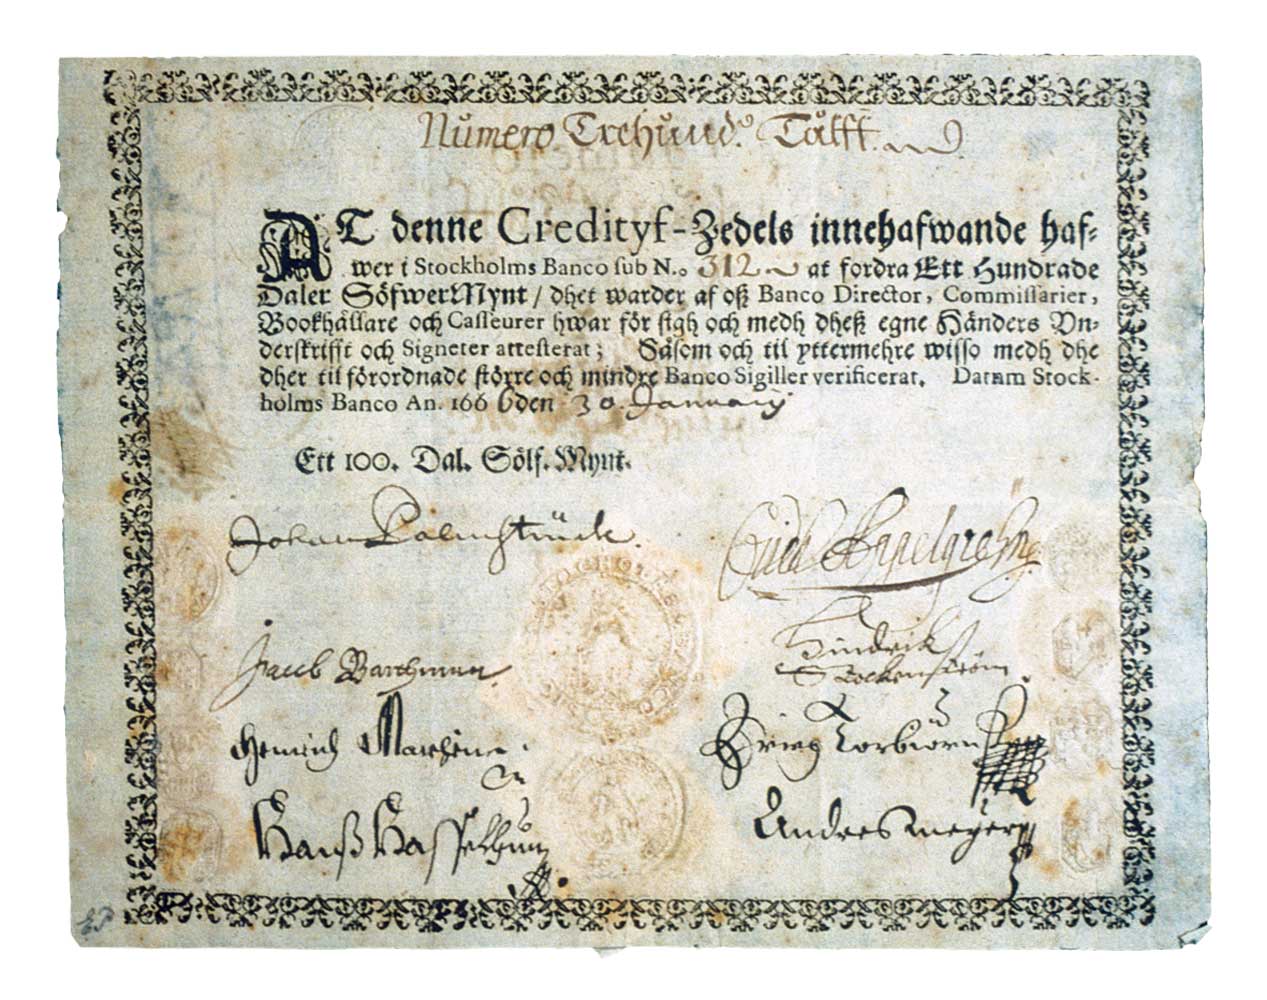 Numero Trehund.º Tålfft
AT denne Credityf-Zedels innehafwande haf-
wer i Stockholms Banco sub N.o 312 at fordra Ett Hundrade
Daler SöfwerMynt / dhet warder af oß Banco Director, Commissarier,
Bookhållare och Casseurer hwar för sigh och medh dheß egne Händers Vn-
derskrifft och Signeter attesterat; Såsom och til yttermehre wisso medh dhe
dher til förordnade större och mindre Banco Sigiller verificerat. Datum Stock-
holms Banco An. 1666 den 30. January
Ett 100. Dal. Sölf. Mynt.
Johan Palmstruck
Appelgrehn
Jacob Barchman
Hindrik
Stockenström
Henrich
Torbiörn
Hanß
Anders Meyer